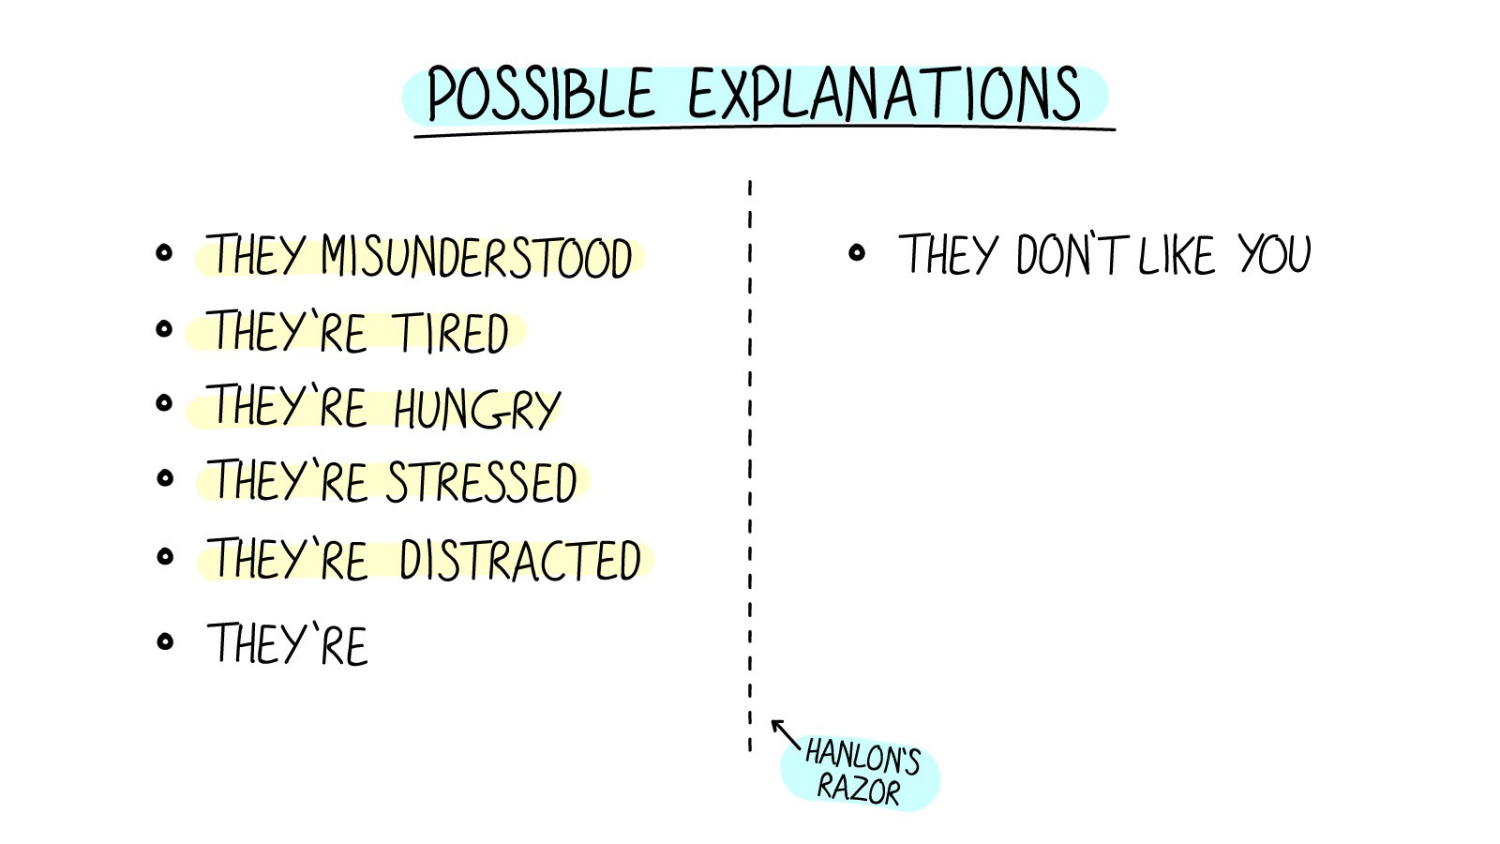 POSSIBLE EXPLANATIONS
THEY MISUNDERSTOOD
THEY'RE TIRED
THEY'RE HUNGRY
THEY'RE STRESSED
THEY'RE DISTRACTED
THEY'RE
THEY DON'T LIKE YOU
HANLON'S
RAZOR